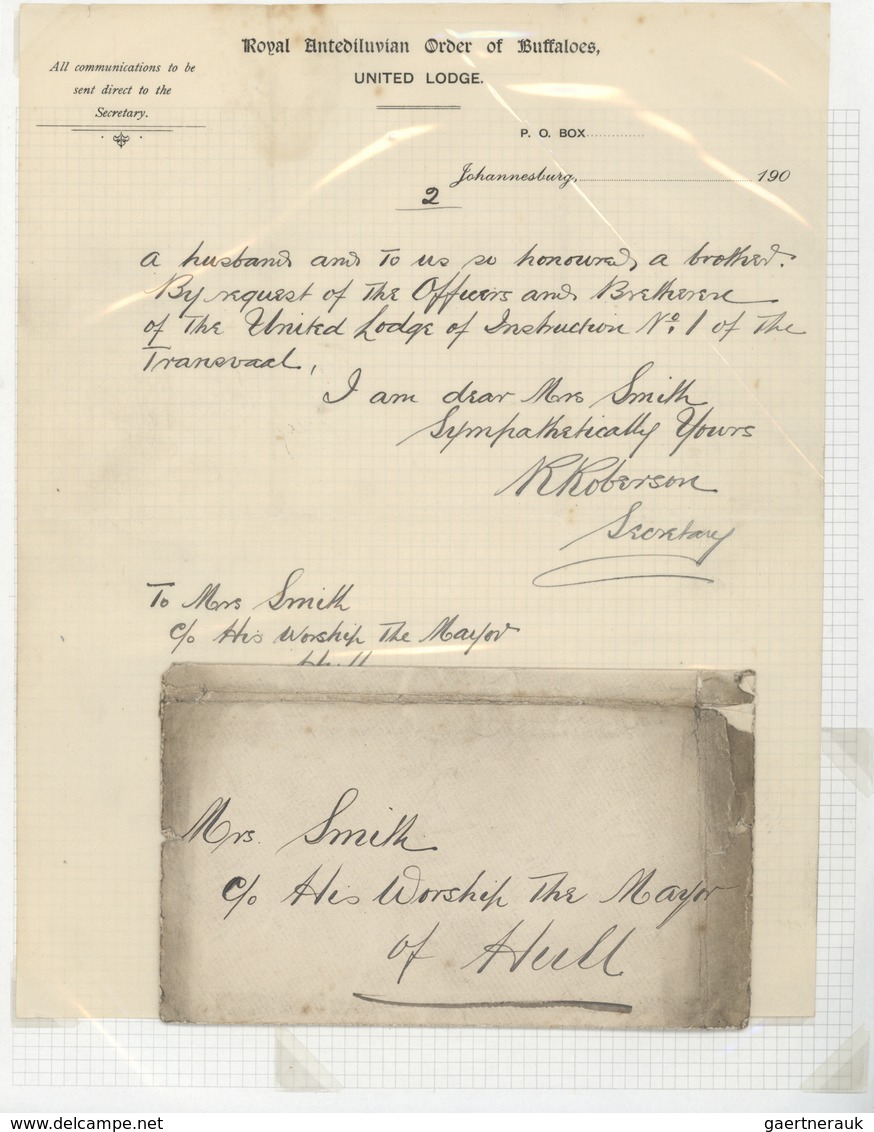 Royal Antediluvian Order of Buffaloes,
UNITED LODGE.
All communications to be
sent direct to the
Secretary.
P. O. BOX
Johannesburg, 190
2
a husband and to us so honoured a brother.
By request of the Officers and Bretheren
of the United Lodge of Instruction No. 1 of the
Transvaal,
I am dear Mrs Smith
Sympathetically Yours
R Roberson
Secretary
To Mrs Smith
c/o His Worship The Mayor
Hull
Mrs. Smith
c/o His Worship The Mayor
of Hull
www.stamp-auctions.de
gaertnerauk